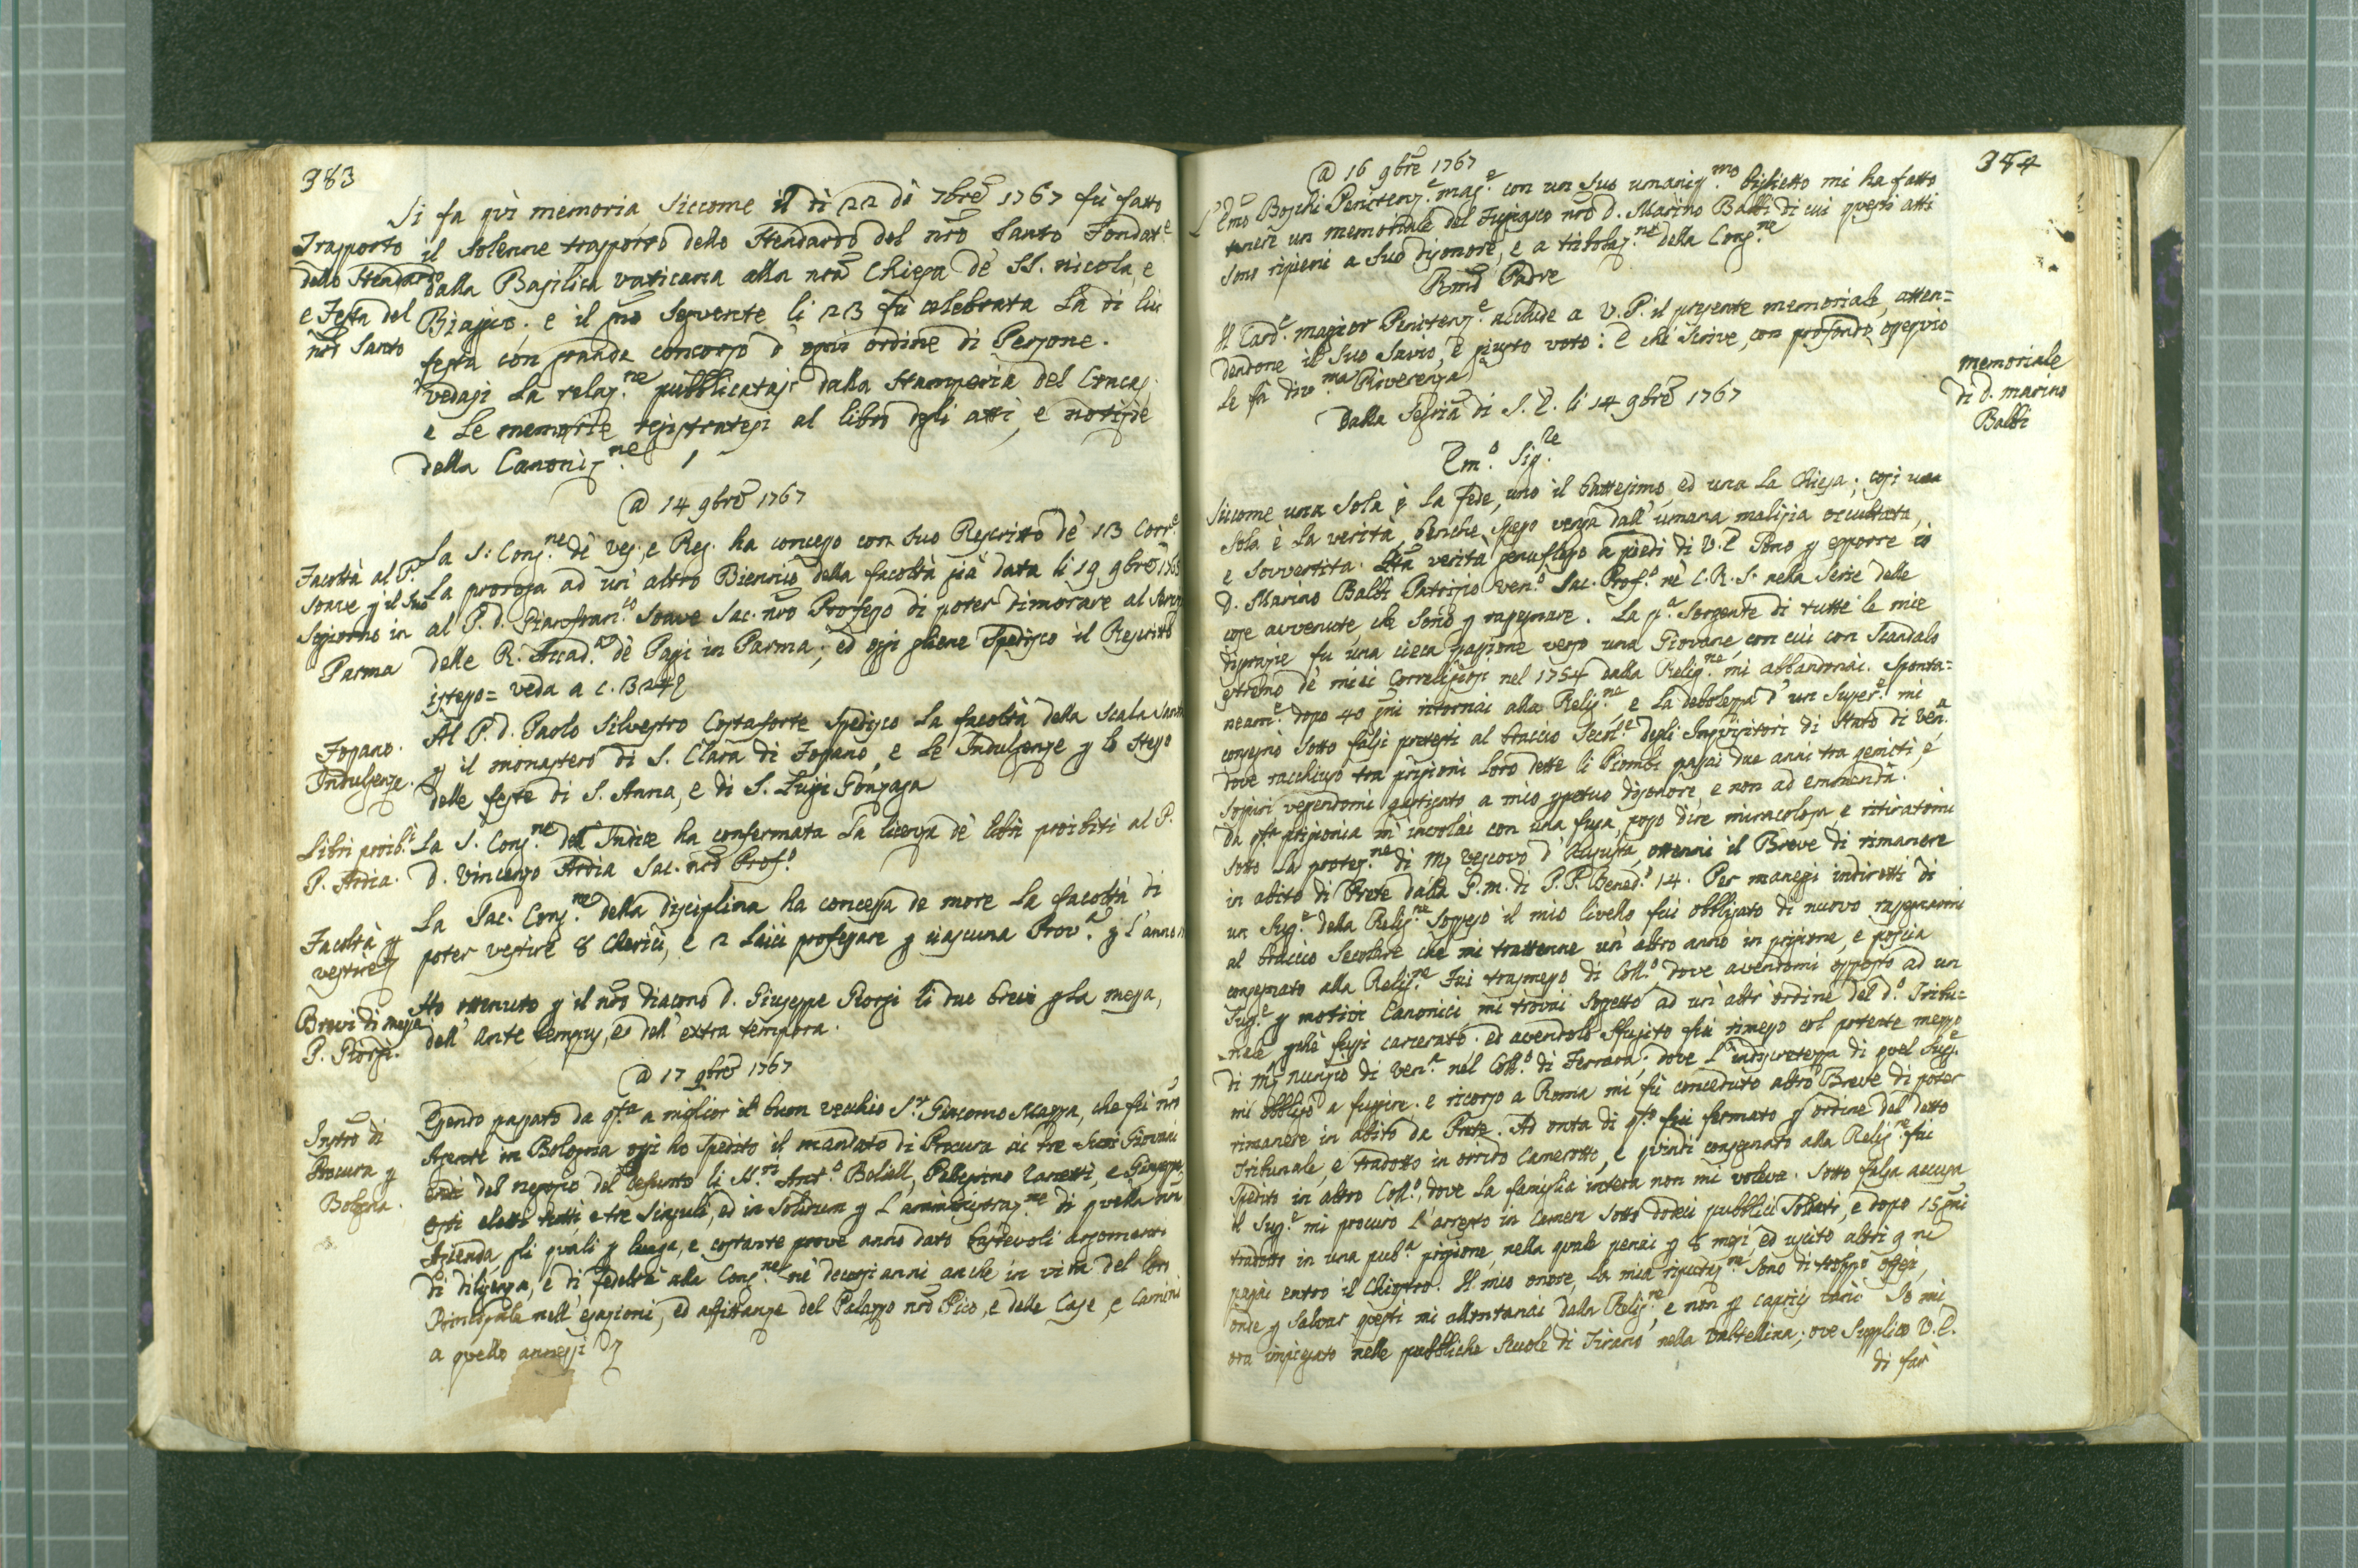 383
Si fa quì memoria, siccome il dì 22 di 7bre 1767 fù fatto
Trasporto
dello Stendardo
e Festa del
nro Santo
il solenne trasporto dello Stendardo del nro Santo Fondat.e
dalla Basilica vaticana alla nra Chiesa de' SS. nicola, e
Biaggio. e il gno seguente li 23 fù celebrata la di lui
festa con grande concorso d'ogni ordine di Persone.
vedasi la relaz.ne pubblicatasi dalla stamperia del Cracas,
e le memorie registratesi al libro degli atti, e notizie
della Canoniz.ne
@ 14 9bre 1767
Facoltà al P.
Soave p il suo
Sogiorno in
Parma
La S: Cong.ne de' Ves. e Reg. ha concesso con suo Rescritto de' 13 Corr.e
la proroga ad un' altro Biennio della facoltà già data li 19 9bre 1765
al P. d. Gianfran.co Soave Sac. nro Professo di poter dimorare al servig
delle R. Accad.a de' Paggi in Parma; ed oggi gliene spedisco il Rescritto
istesso = veda a c. 324
Fossano.
Indulgenze.
Al P. d. Paolo Silvestro Costaforte spedisco la facoltà della Scala Santa
p il monastero di S. Clara di Fossano, e le Indulgenze p lo stesso
delle feste di S. Anna, e di S. Luigi Gonzaga
Libri proib.i
P. Ardia.
La S. Cong.ne dell' Indice ha confermata la licenza de' libri proibiti al P.
d. Vincenzo Ardia Sac. nro Prof.o
Facoltà p
vestire
La Sac. Cong.ne della disciplina ha concessa de more la facoltà di
poter vestire 8 Cherici, e 2 Laici professare p ciascuna Prov.a p l'anno
Brevi di messa
P. Giorgi.
Ho ottenuto p il nro diacono d. Giuseppe Giorgi li due brevi p la messa,
dell' ante tempus, e dell' extra tempora.
@ 17 9bre 1767
Instro di
Procura p
Bologna.
Essendo passato da qsta a miglior il buon vecchio S.r Giacomo Mazza, che fù nro
Agente in Bologna oggi ho spedito il mandato di Procura ai tre suoi Giovani
eredi del negozio del defunto li SS.ri Ant.o Beliell, Pellegrino Zanetti, e Giuseppe
Orsi eletti tutti e tre singuli, ed in solidum p l'amministraz.ne di quella nra
Azienda, gli quali p lunga, e costante prove anno dato bastevoli argomenti
di diligenza, e di fedeltà alla Cong.ne ne' decorsi anni anche in vita del loro
Principale nell' esazioni, ed affittanze del Palazzo nro Pico, e delle Case, e Camini
a quello annessi
384
@ 16 9bre 1767
L'Emo Boschi Penitenz.e mag.e con un suo umaniss.mo biglietto mi ha fatto
tenere un memoriale del Fuggiasco nro d. Marino Balbi di cui questi atti
sono ripieni a suo disonore, e a tribolaz.ne della Cong.ne
Rmo Padre
memoriale
di d. marino
Balbi
Il Card.e maggior Penitenz.e acclude a V. P. il presente memoriale, atten=
dendone il suo savio, e giusto voto: e chi scrive, con profondo ossequio
le fà div.ma Riverenza
Dalla Segria di S. E. li 14 9bre 1767
Em.o Sig.re
Siccome una sola è la fede, uno il battesimo, ed una la Chiesa; così una
sola è la verità, benche spesso venga dall' umana malizia occultata,
e sovvertita. Sta verità genuflesso a piedi di V. E. sono p esporre io
d. Marino Balbi Patrizio Ven.o Sac. Prof.o ne' C. R. S. nella serie delle
cose avvenute, che sono p rassegnare. La p.a sorgente di tutte le mie
disgrazie fu una cieca passione verso una Giovane, con cui con scandalo
estremo de' miei Correligiosi nel 1754 dalla Relig.ne mi allontanai. Sponta=
neam.e dopo 40 gni ritornai alla Relig.ne, e la debolezza d' un Super.e mi
consegnò sotto falsi pretesti al braccio Secol.e degli Inquisitori di Stato di Ven.a
dove racchiuso tra prigioni loro dette li Piombi passai due anni tra gemiti, e
sospiri vegendomi gastigato a mio ppetuo disonore, e non ad emmenda.
Da qsta prigionia m' involai con una fuga, posso dire miracolosa, e ritiratomi
sotto la protez.ne di M.r Vescovo d' Augusta, ottenni il Breve di rimanere
in abito di Prete dalla S. m. di P. P. Bened.o 14. Per maneggi indiretti di
un Sup.e della Relig.ne sospeso il mio livello fui obbligato di nuovo rassegnarmi
al braccio Secolare che mi trattenne un' altro anno in prigione, e poscia
consegnato alla Relig.ne Fui trasmesso di Coll.o dove avendomi opposto ad un
Sup.e p motivi Canonici mi trovai soggetto ad un' altr' ordine del d.o Tribu=
nale pchè fussi carcerato. ed avendolo sfugito fui rimesso col potente mezzo
di M.r nunzio di Ven.a nel Coll.o di Ferrara; dove l' indiscretezza di quel Sup.e
mi obbligò a fuggire. e ricorso a Roma mi fù conceduto altro Breve di poter
rimanere in abito da Prete. Ad onta di qsto fui fermato p ordine del detto
Tribunale, e tradotto in orrido Camerotto, e quindi consegnato alla Relig.ne fui
spedito in altro Coll.o, dove la famiglia intera non mi voleva. Sotto falsa accusa
il Sup.e mi procurò l'arresto in Camera sotto dodeci pubblici Soldati, e dopo 15 gni
tradotto in una pub.a prigione, nella quale penai p 8 mesi, ed uscito altri 9 ne
passai entro il Chiostro. Il mio onore, la mia riputaz.ne sono di troppo offesi,
onde p salvar questi mi allontanai dalla Relig.ne, e non p caprici varii. Io mi
ora impiegato nelle pubbliche scuole di Tirano nella Valtellina; ove supplico V. E.
di far